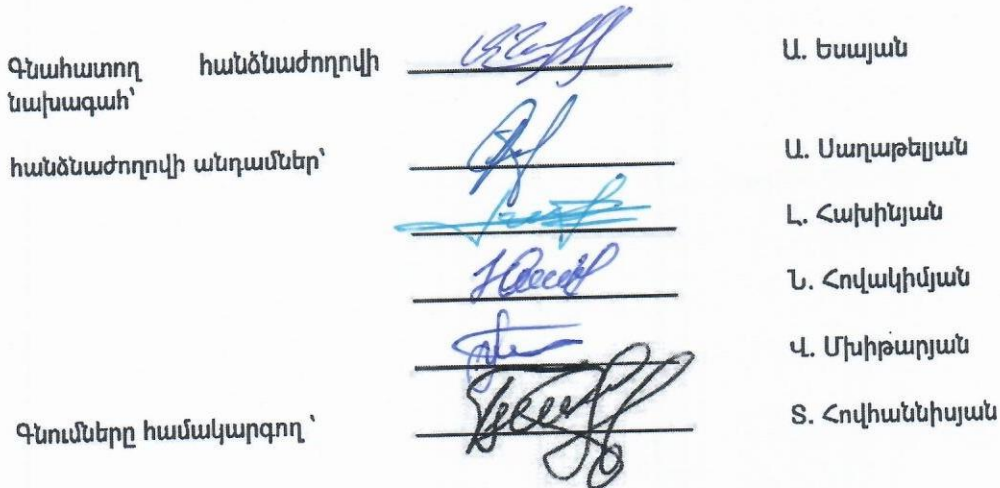 Գնահատող հանձնաժողովի Ա. Եսայան
նախագահ՝
հանձնաժողովի անդամներ՝ Ա. Սաղաթելյան
Լ. Հախինյան
Ն. Հովակիմյան
Վ. Մխիթարյան
Գնումները համակարգող ՝ Տ. Հովհաննիսյան